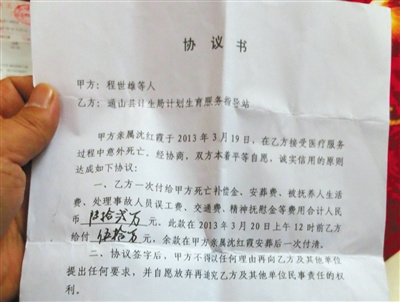 协议书
甲方：程世雄等人
乙方：通山县计生局计划生育服务指导站
甲方亲属沈红霞于2013年3月19日，在乙方接受医疗服务
过程中意外死亡。经协商，双方本着平等自愿，诚实信用的原则
达成如下协议：
一、乙方一次付给甲方死亡补偿金、安葬费、被抚养人生活
费、处理事故人员误工费、交通费、精神抚慰金等费用合计人民
币 万元，此款在2013年3月20日上午12时前乙方
给付伍拾万元，余款在甲方亲属沈红霞安葬后一次付清。
二、协议签字后，甲方不得以任何理由再向乙方及其他单位
提出任何要求，并自愿放弃再追究乙方及其他单位民事责任的权
利。